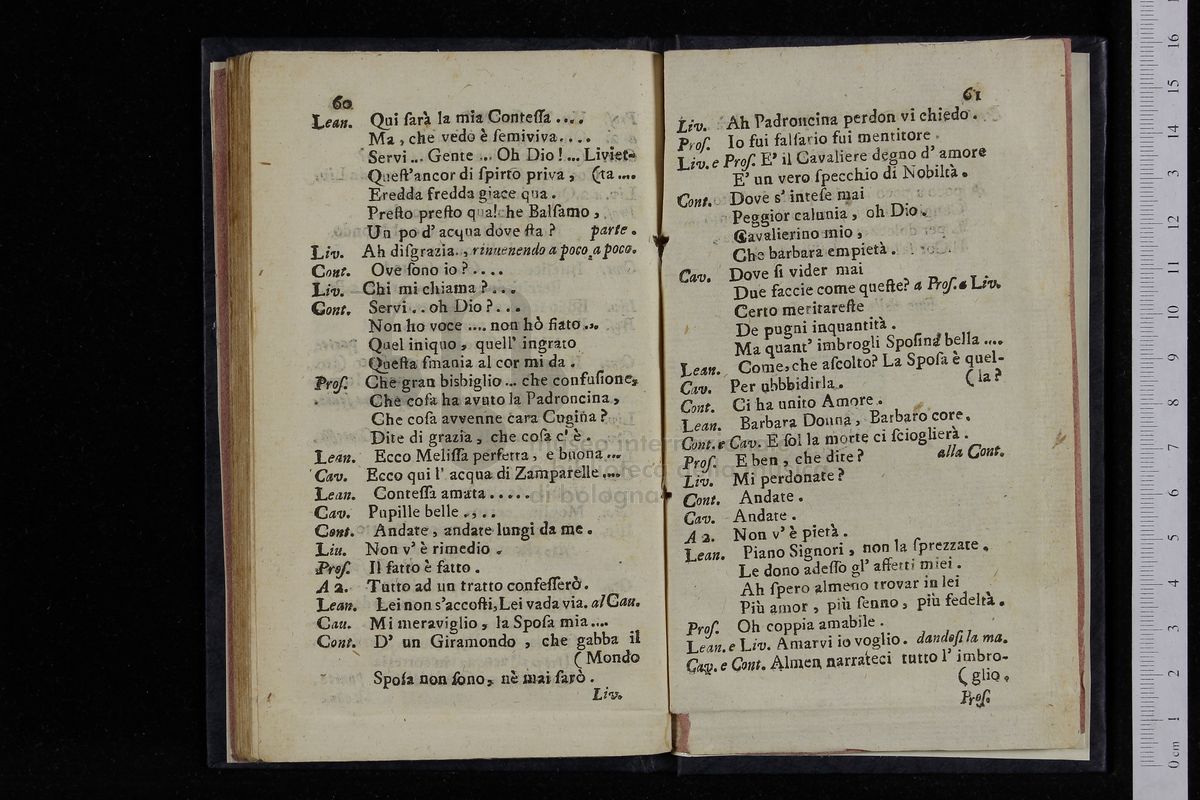 60
Lean. Qui ſarà la mia Conteſſa ....
Ma , che vedo è ſemiviva....
Servi ... Gente ... Oh Dio ! ... Liviet-
Queſt'ancor di ſpirto priva , (ta ....
Eredda fredda giace qua .
Preſto preſto qualche Balſamo ,
Un po d' acqua dove ſta ? parte .
Liv. Ah diſgrazia . , rinvenendo a poco a poco.
Cont. Ove ſono io ? ....
Liv. Chi mi chiama ? ...
Cont. Servi .. oh Dio ? ...
Non ho voce .... non hò fiato ...
Quel iniquo , quell' ingrato
Queſta ſmania al cor mi da .
Proſ. Che gran bisbiglio ... che confuſione,
Che coſa ha avuto la Padroncina ,
Che coſa avvenne cara Cugina ?
Dite di grazia , che coſa c' è .
Lean. Ecco Meliſſa perfetta , e buona ...
Cav. Ecco qui l' acqua di Zamparelle ....
Lean. Conteſſa amata .....
Cav. Pupille belle ....
Cont. Andate , andate lungi da me .
Liu. Non v' è rimedio .
Proſ. Il fatto è fatto .
A 2. Tutto ad un tratto confeſſerò .
Lean. Lei non s'accoſti, Lei vada via. al Cau.
Cau. Mi meraviglio , la Spoſa mia ....
Cont. D' un Giramondo , che gabba il
( Mondo
Spoſa non ſono , nè mai ſarò .
Liv.
61
Liv. Ah Padroncina perdon vi chiedo .
Proſ. Io fui falſario fui mentitore .
Liv. e Proſ. E' il Cavaliere degno d' amore
E' un vero ſpecchio di Nobiltà .
Cont. Dove s' inteſe mai
Peggior calunia , oh Dio .
Cavalierino mio ,
Che barbara empietà .
Cav. Dove ſi vider mai
Due faccie come queſte? a Proſ. e Liv.
Certo meritareſte
De pugni inquantità .
Ma quant' imbrogli Spoſina bella ....
Lean. Come, che aſcolto? La Spoſa è quel-
Cav. Per ubbbidirla . ( la ?
Cont. Ci ha unito Amore .
Lean. Barbara Donna , Barbaro core .
Cont. e Cav. E ſol la morte ci ſcioglierà .
Proſ. E ben , che dite ? alla Cont.
Liv. Mi perdonate ?
Cont. Andate .
Cav. Andate .
A 2. Non v' è pietà .
Lean. Piano Signori , non la ſprezzate .
Le dono adeſſo gl' affetti miei .
Ah ſpero almeno trovar in lei
Più amor , più ſenno , più fedeltà .
Proſ. Oh coppia amabile .
Lean. e Liv. Amarvi io voglio . dandoſi la ma.
Cav. e Cont. Almen narrateci tutto l' imbro-
( glio .
Proſ.